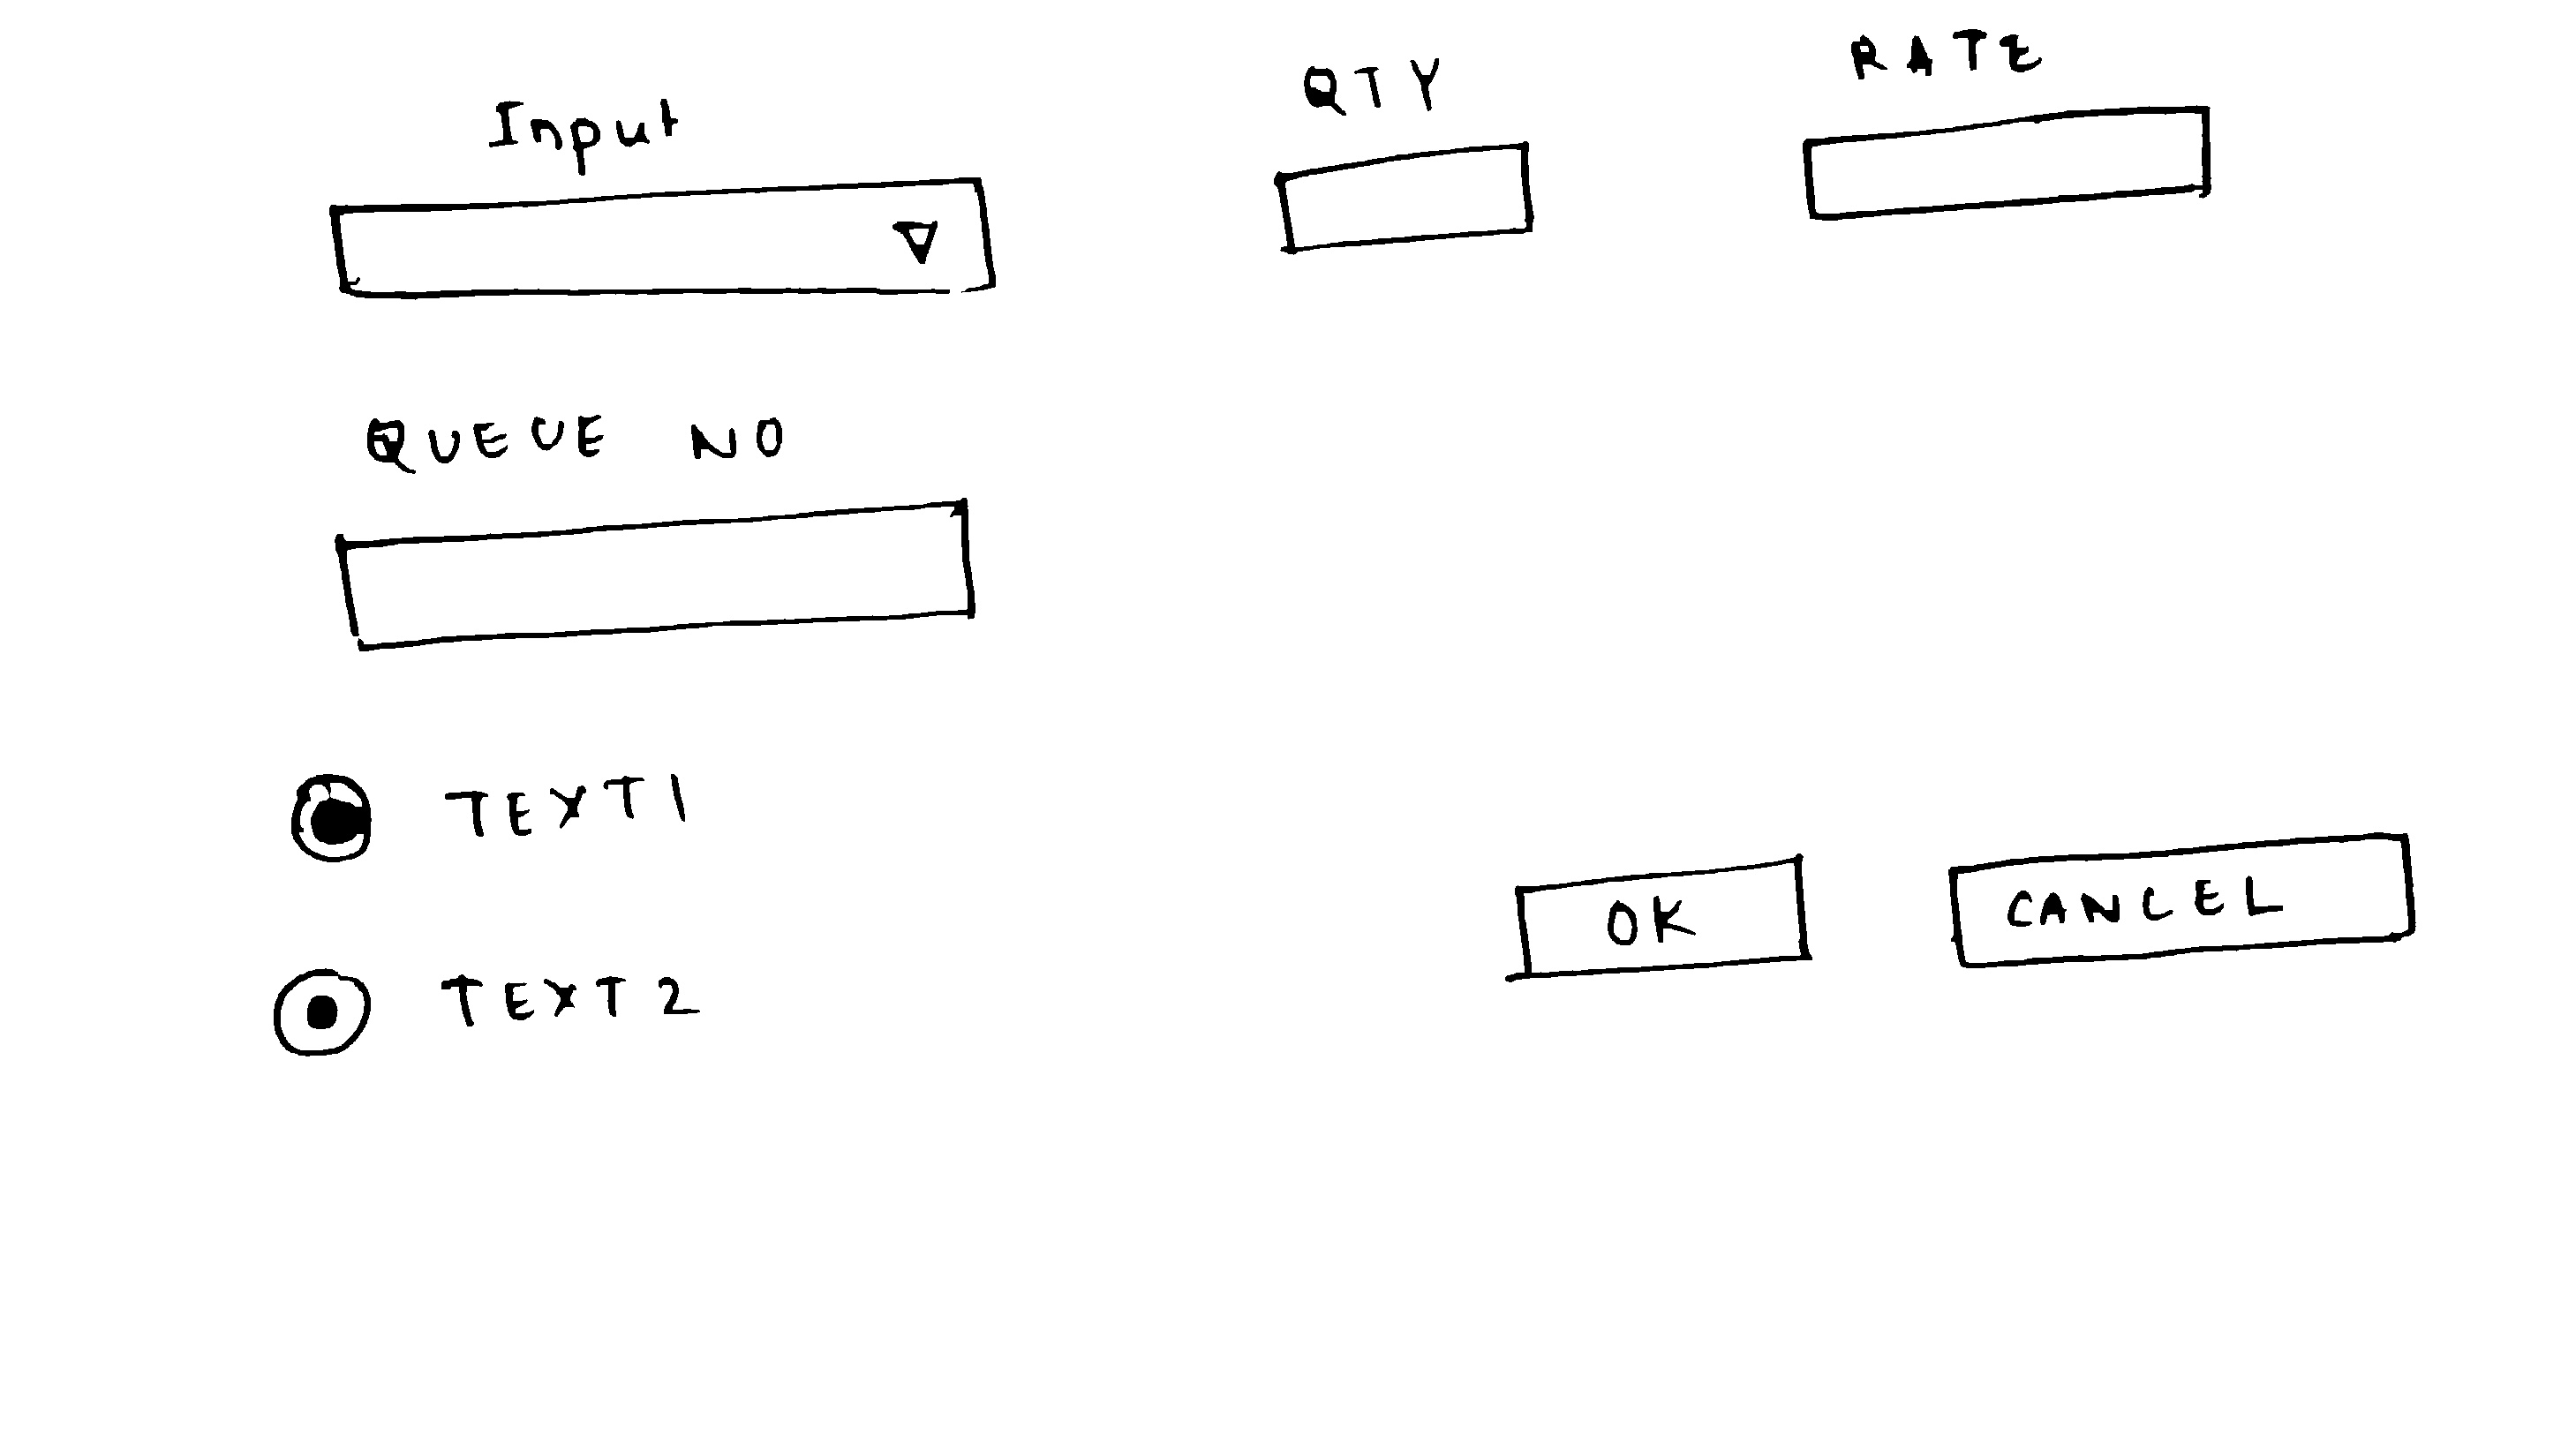 Input
QTY
RATE
QUEUE NO
TEXT1
TEXT2
OK
CANCEL